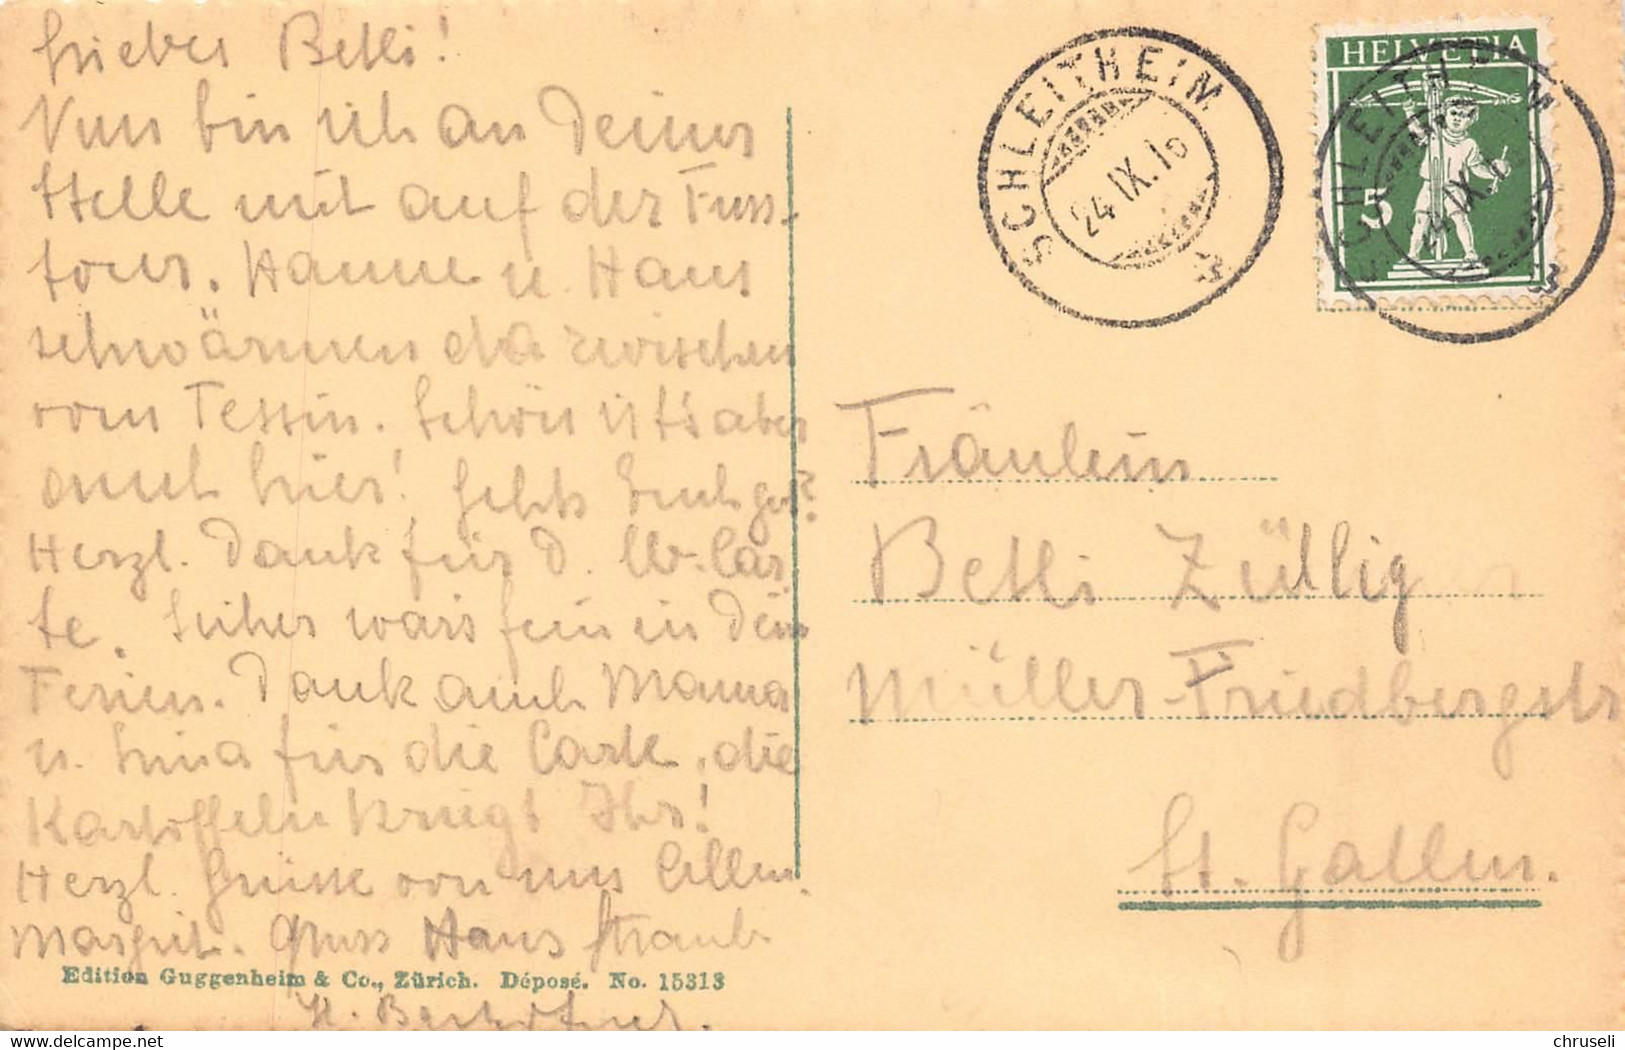 Liebes Betli!
Nun bin ich an Deiner
Stelle mit auf der Fuss-
tour. Hanne u. Hans
schwärmen da zwischen
vom Tessin. Schön ist's aber
auch hier! Gehts Euch gut?
Herzl. Dank für D. Car-
te. Sicher wars fein in Dein
Ferien. Dank auch Mama
u. Lina für die Carte, die
Kartoffeln kriegt Ihr!
Herzl. Grüsse von uns Allen.
Margrit. Gruss Hans Straub
Edition Guggenheim & Co., Zürich. Déposé. No. 15313
H.
SCHLEITHEIM
24.IX.16
HELVETIA
5
SCHLEITHEIM
24.IX.16
Fräulein
Betli Züllig
Müller-Friedbergstr
St. Gallen.
chruseli